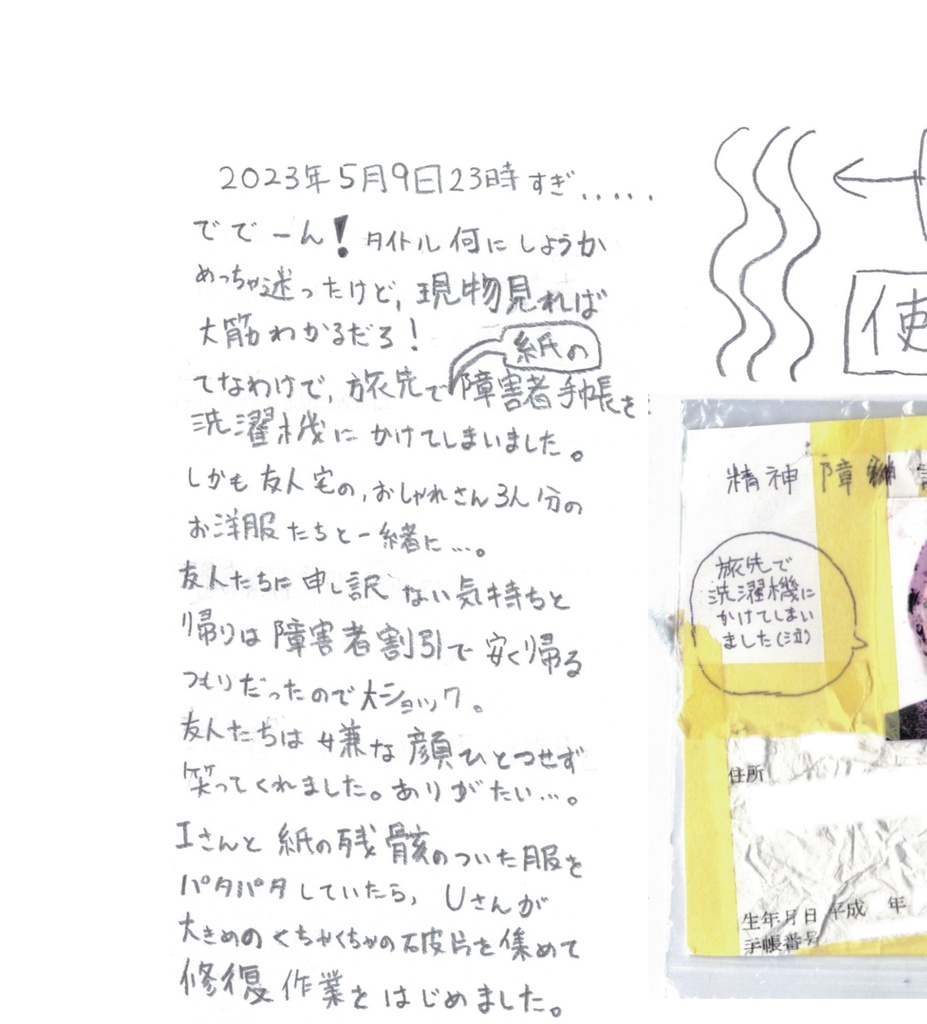 2023年5月9日23時すぎ.....
ででーん!タイトル何にしようか
めっちゃ迷ったけど,現物見れば
大筋わかるだろ!
紙の
てなわけで,旅先で障害者手帳を
洗濯機にかけてしまいました。
しかも友人宅の,おしゃれさん3人分の
お洋服たちと一緒に…。
友人たちは申し訳ない気持ちと
帰りは障害者割引で安く帰る
つもりだったので大ショック。
友人たちは嫌な顔ひとつせず
笑ってくれました。ありがたい…。
Iさんと紙の残骸のついた服を
パタパタしていたら,Uさんが
大きめのくちゃくちゃの破片を集めて
修復作業をはじめました。
使
精神障
旅先で
洗濯機に
かけてしまい
ました(泣)
住所
生年月日 平成 年
手帳番号